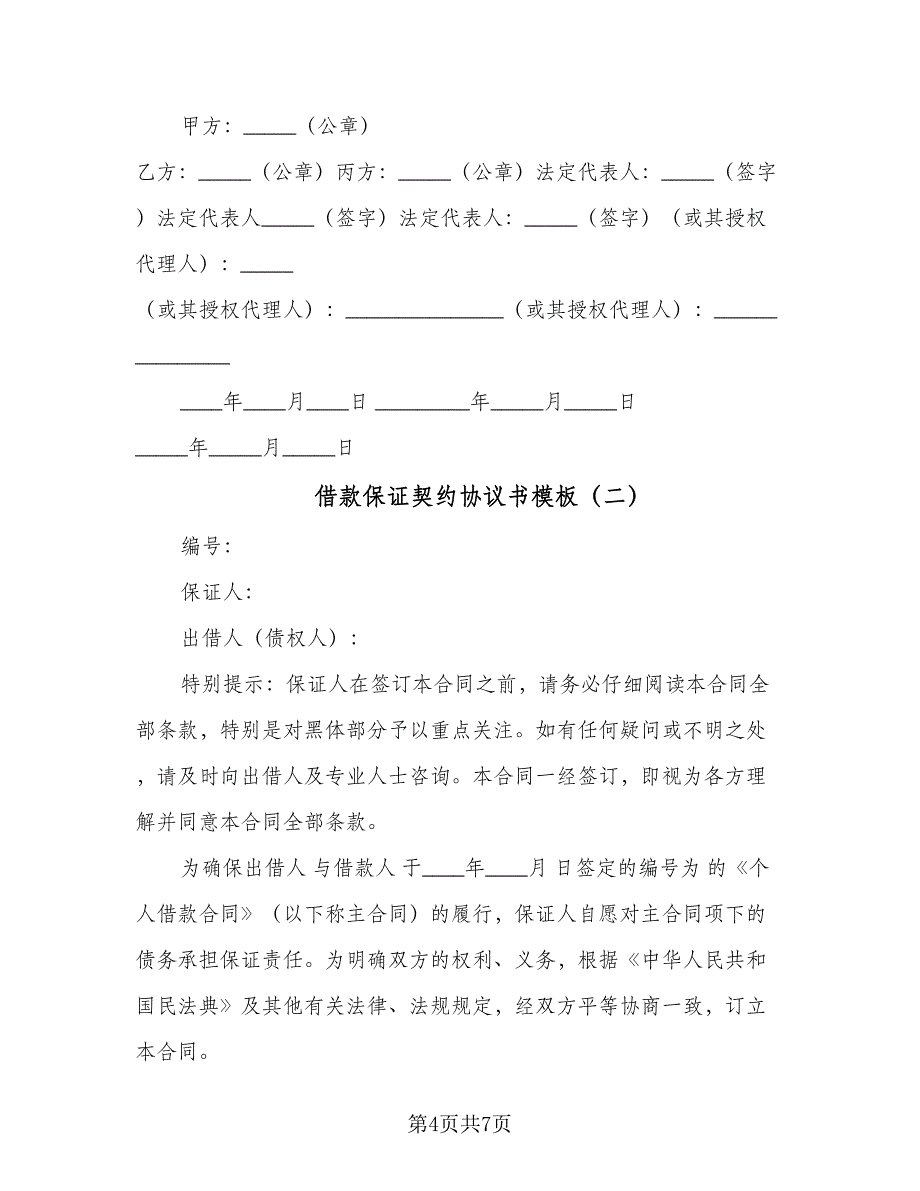 甲方：_____（公章）
乙方：_____（公章）丙方：_____（公章）法定代表人：_____（签字
）法定代表人_____（签字）法定代表人：_____（签字）（或其授权
代理人）：_____
（或其授权代理人）：_______________（或其授权代理人）：______
_________
____年____月____日 _________年_____月_____日
_____年_____月_____日
借款保证契约协议书模板（二）
编号：
保证人：
出借人（债权人）：
特别提示：保证人在签订本合同之前，请务必仔细阅读本合同全
部条款，特别是对黑体部分予以重点关注。如有任何疑问或不明之处
，请及时向出借人及专业人士咨询。本合同一经签订，即视为各方理
解并同意本合同全部条款。
为确保出借人 与借款人 于____年____月 日签定的编号为 的《个
人借款合同》（以下称主合同）的履行，保证人自愿对主合同项下的
债务承担保证责任。为明确双方的权利、义务，根据《中华人民共和
国民法典》及其他有关法律、法规规定，经双方平等协商一致，订立
本合同。
第4页共7页